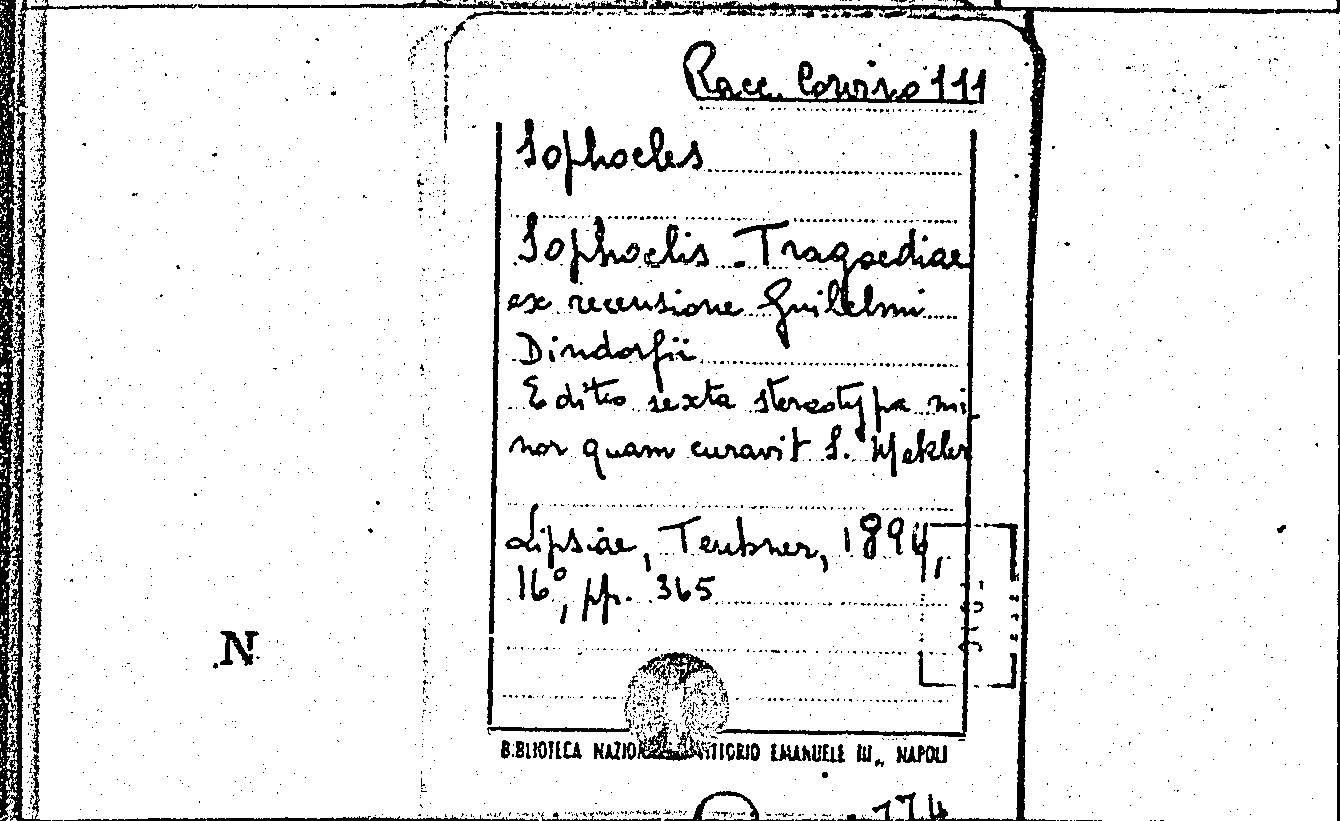 Racc. Corvino 111
Sophocles
Sophoclis Tragoediae
ex recensione Guilelmi
Dindorfii
Editio sexta stereotypa mi-
nor quam curavit S. Mekler
Lipsiae, Teubner, 1894,
16°, pp. 365
N
BIBLIOTECA NAZIONALE VITTORIO EMANUELE III, NAPOLI